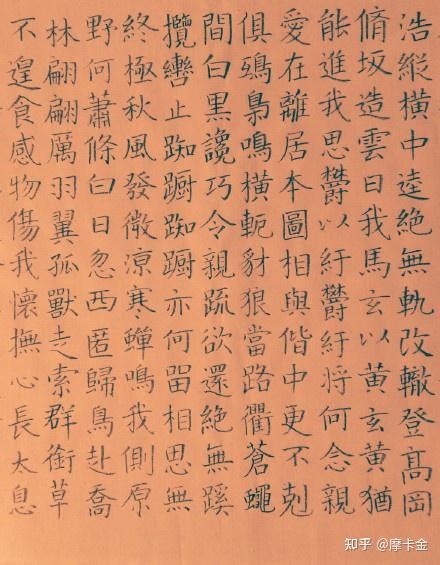 浩縱橫中逵絕無軌改轍登髙岡
脩坂造雲日我馬玄以黃玄黃猶
能進我思鬱以紆鬱紆将何念親
愛在離居本圖相與偕中更不剋
俱鴞梟鳴橫軛豺狼當路衢蒼蠅
間白黑讒巧令親疏欲還絕無蹊
攬轡止踟躕踟躕亦何留相思無
終極秋風發微涼寒蟬鳴我側原
野何蕭條白日忽西匿歸鳥赴喬
林翩翩厲羽翼孤獸走索群銜草
不遑食感物傷我懷撫心長太息
知乎 @摩卡金